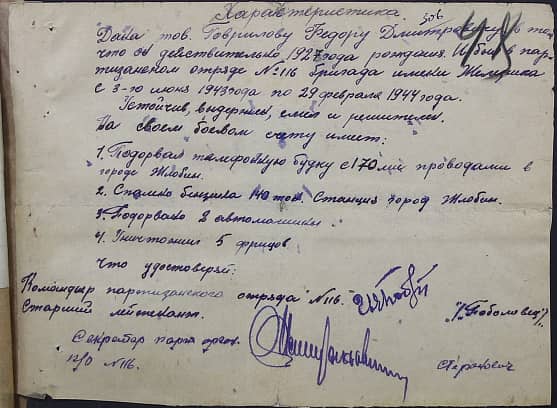 Характеристика
Дана тов. Гаврилову Федору Дмитриевичу в том,
что он действительно 1927 года рождения. И был в пар-
тизанском отряде №116 бригада имени Железняка
с 3-го июня 1943 года по 29 февраля 1944 года.
Устойчив, выдержен, смел и решителен.
На своем боевом счету имеет:
1. Подорвал телефонную будку с 170 проводами в
городе Жлобин.
2. бензина 140 тон. Станция город Жлобин.
3. Подорвано 2 автомашины
4. Уничтожил 5 фрицов
Что удостоверяй:
Командыр партизанского отряда №116.
Старший лейтенант.
/Тоболовец/
Секретар парт орган.
П/О №116.